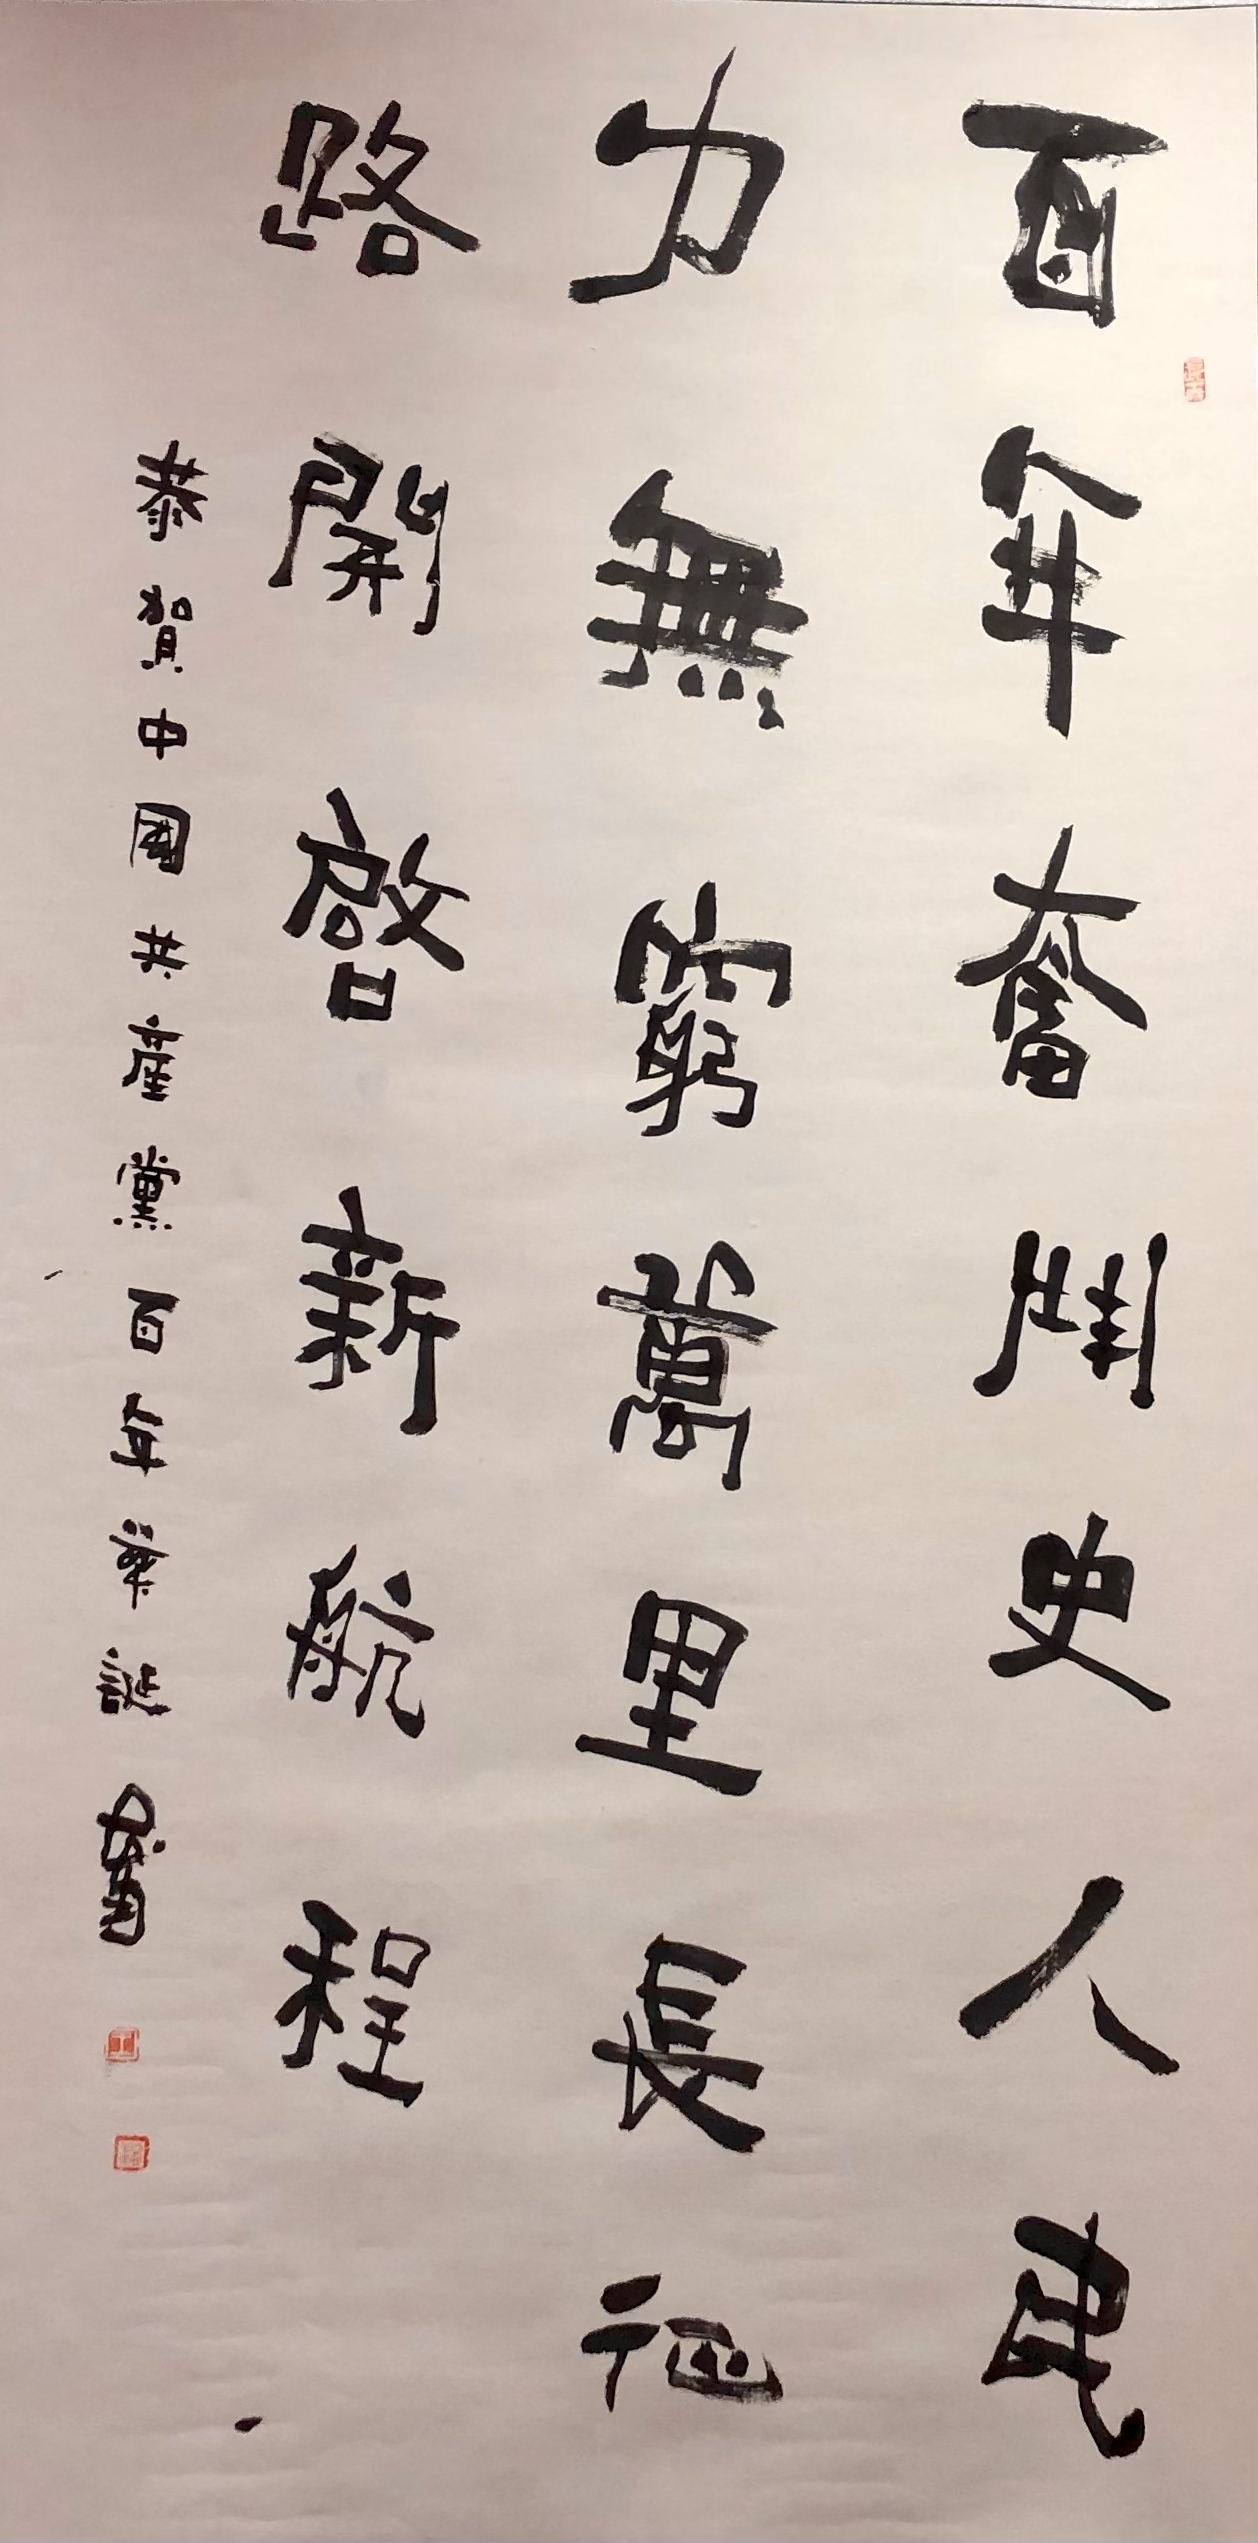 百年奮鬥史人民
力無窮萬里長征
路開啓新航程
恭賀中國共產黨百年華誕